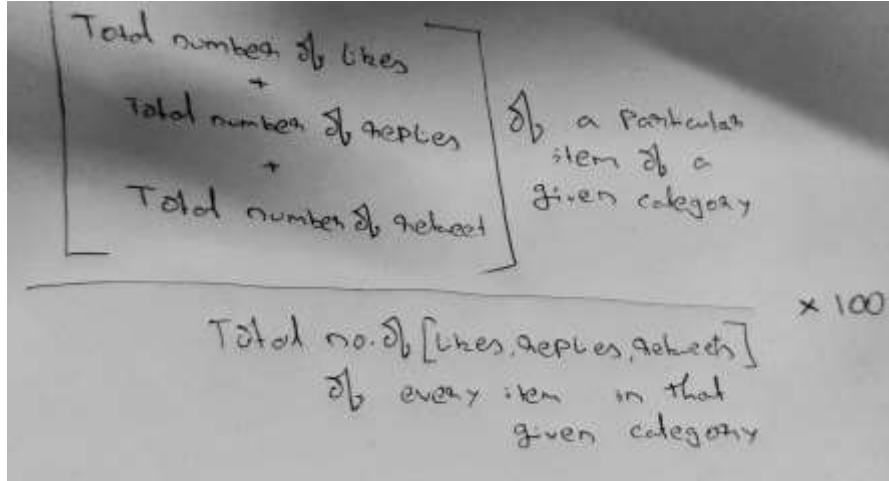 Total number of likes
+
Total number of replies
+
Total number of retweet
of a particular
item of a
given category
× 100
Total no. of [likes, replies, retweets]
of every item in that
given category